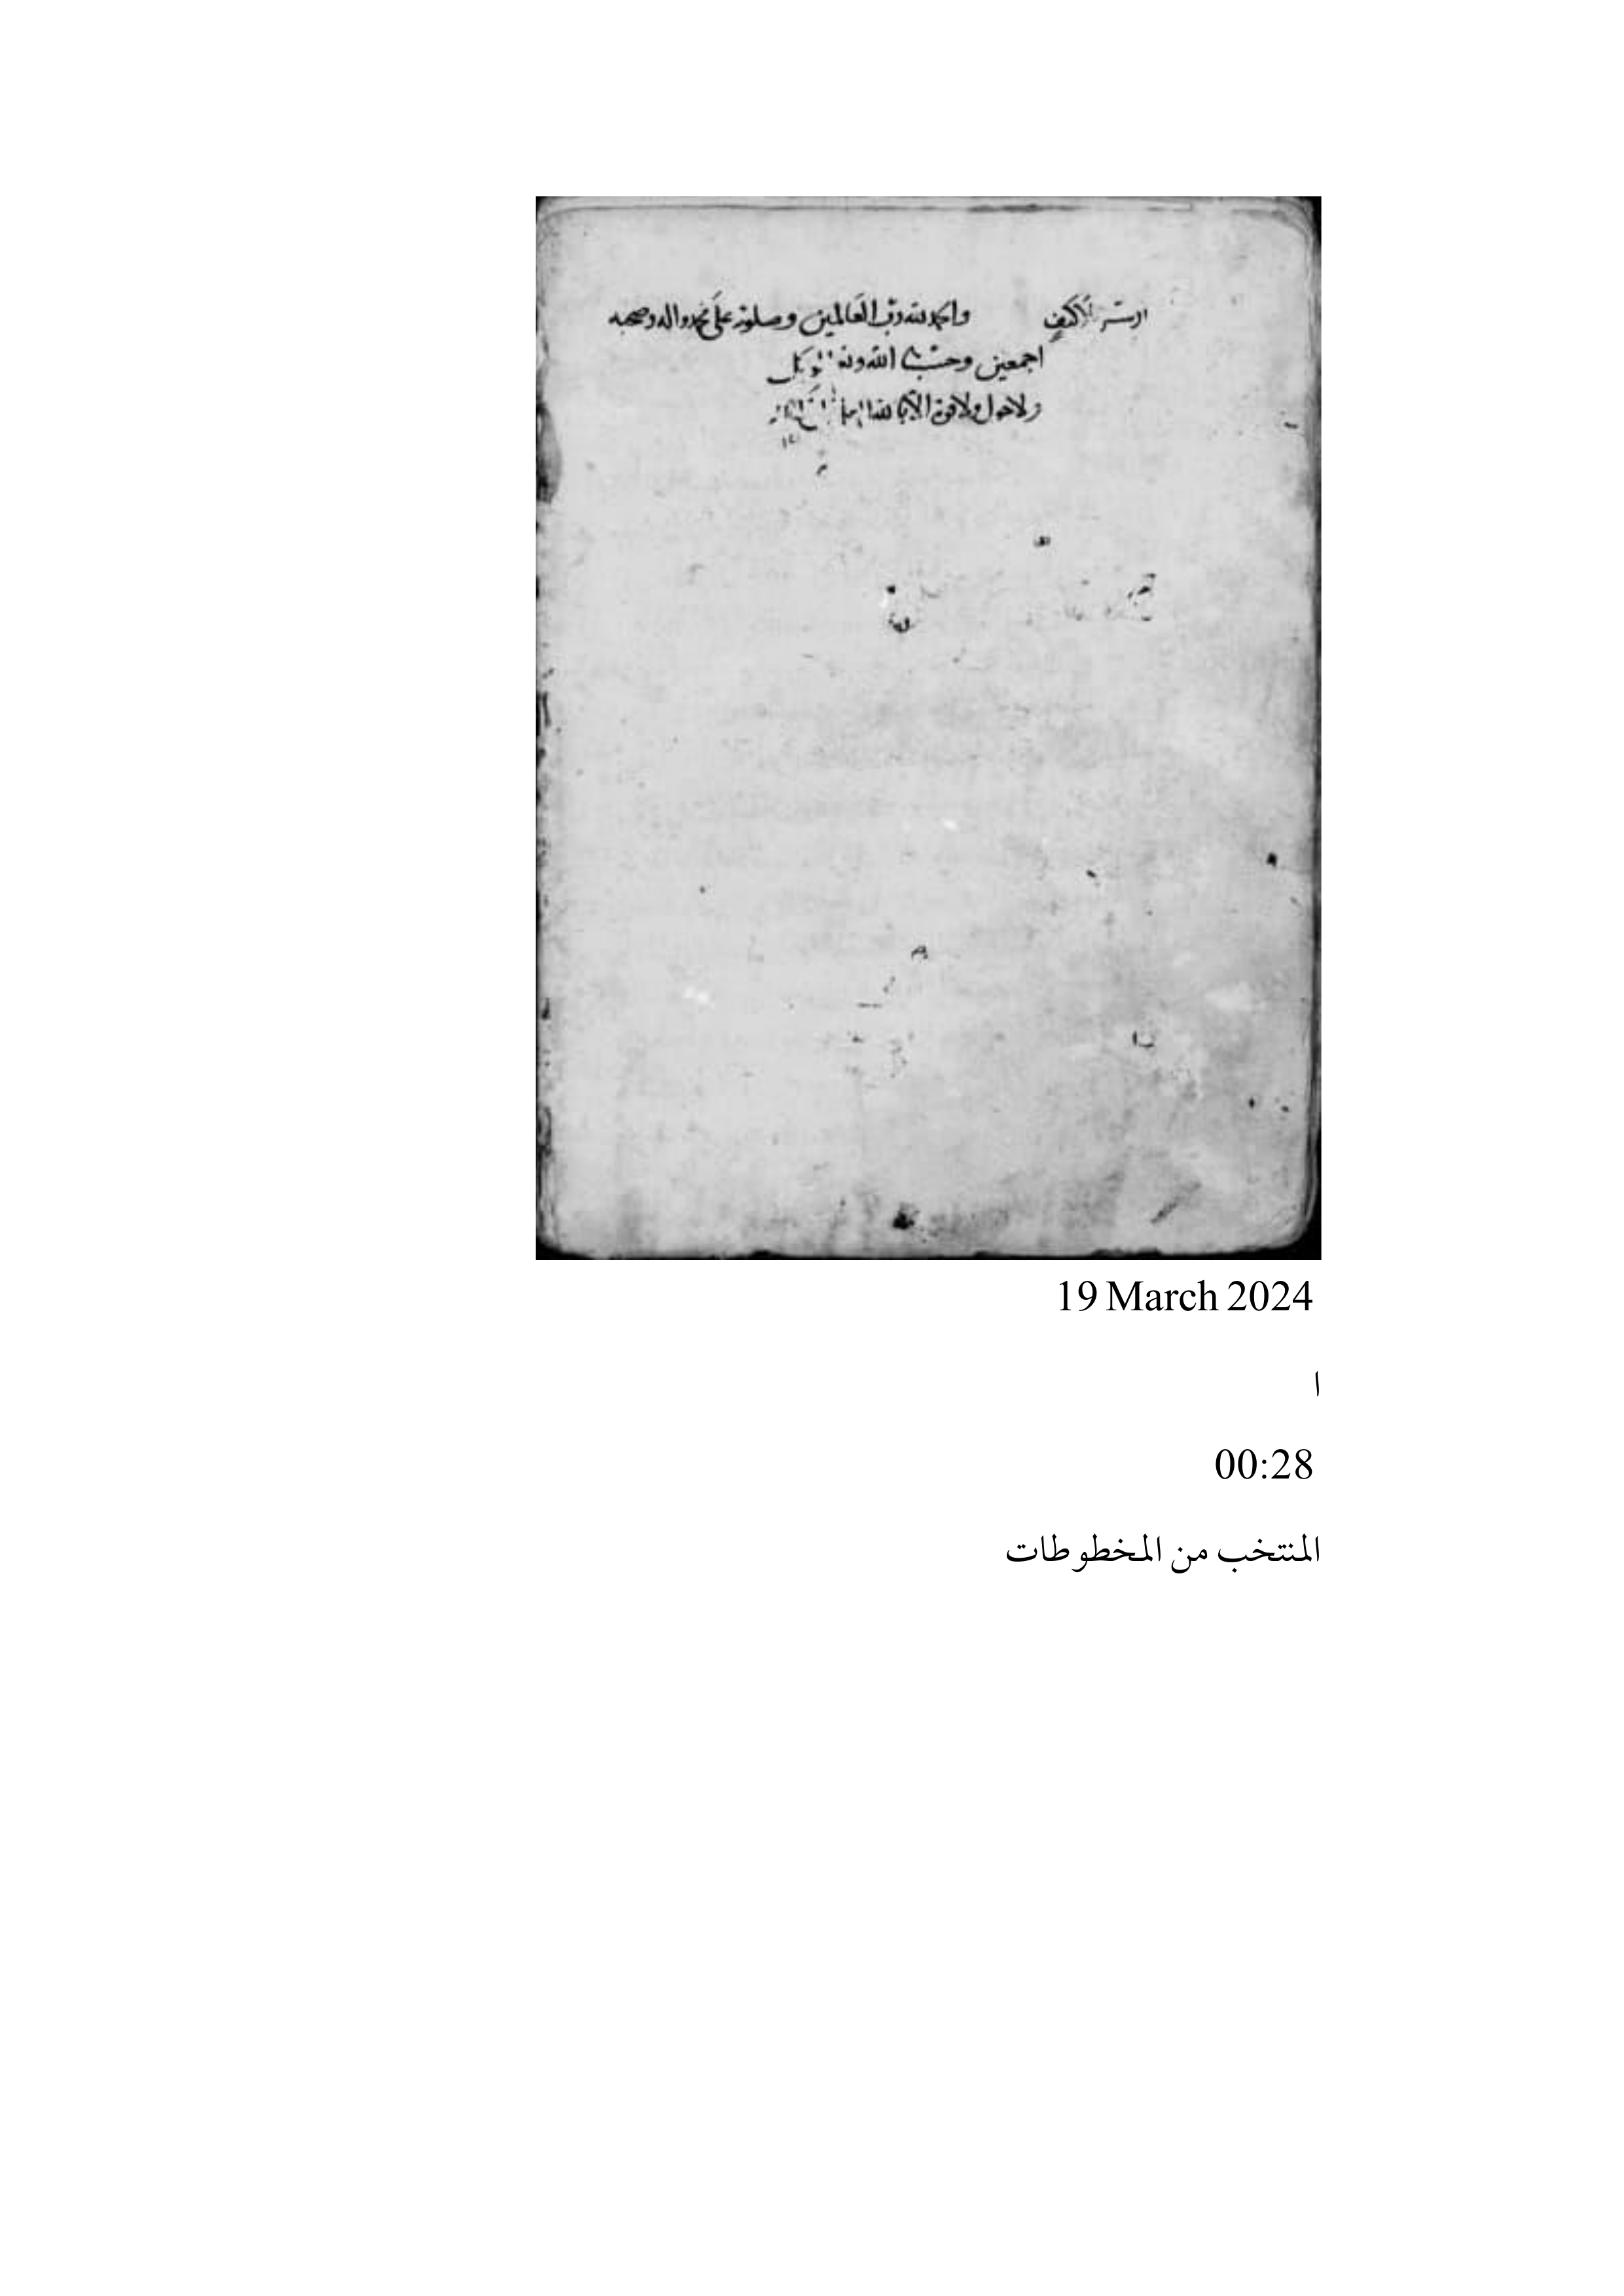 والحمد لله رب العالمين وصلوته على محمد واله وصحبه
اجمعين وحسبي الله ونعم الوكيل
ولا حول ولا قوة الا بالله العلي
19 March 2024
ا
00:28
المنتخب من المخطوطات